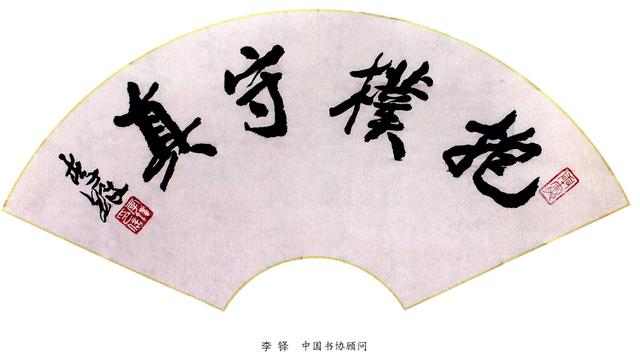 抱樸守真
李鐸
李铎 中国书协顾问